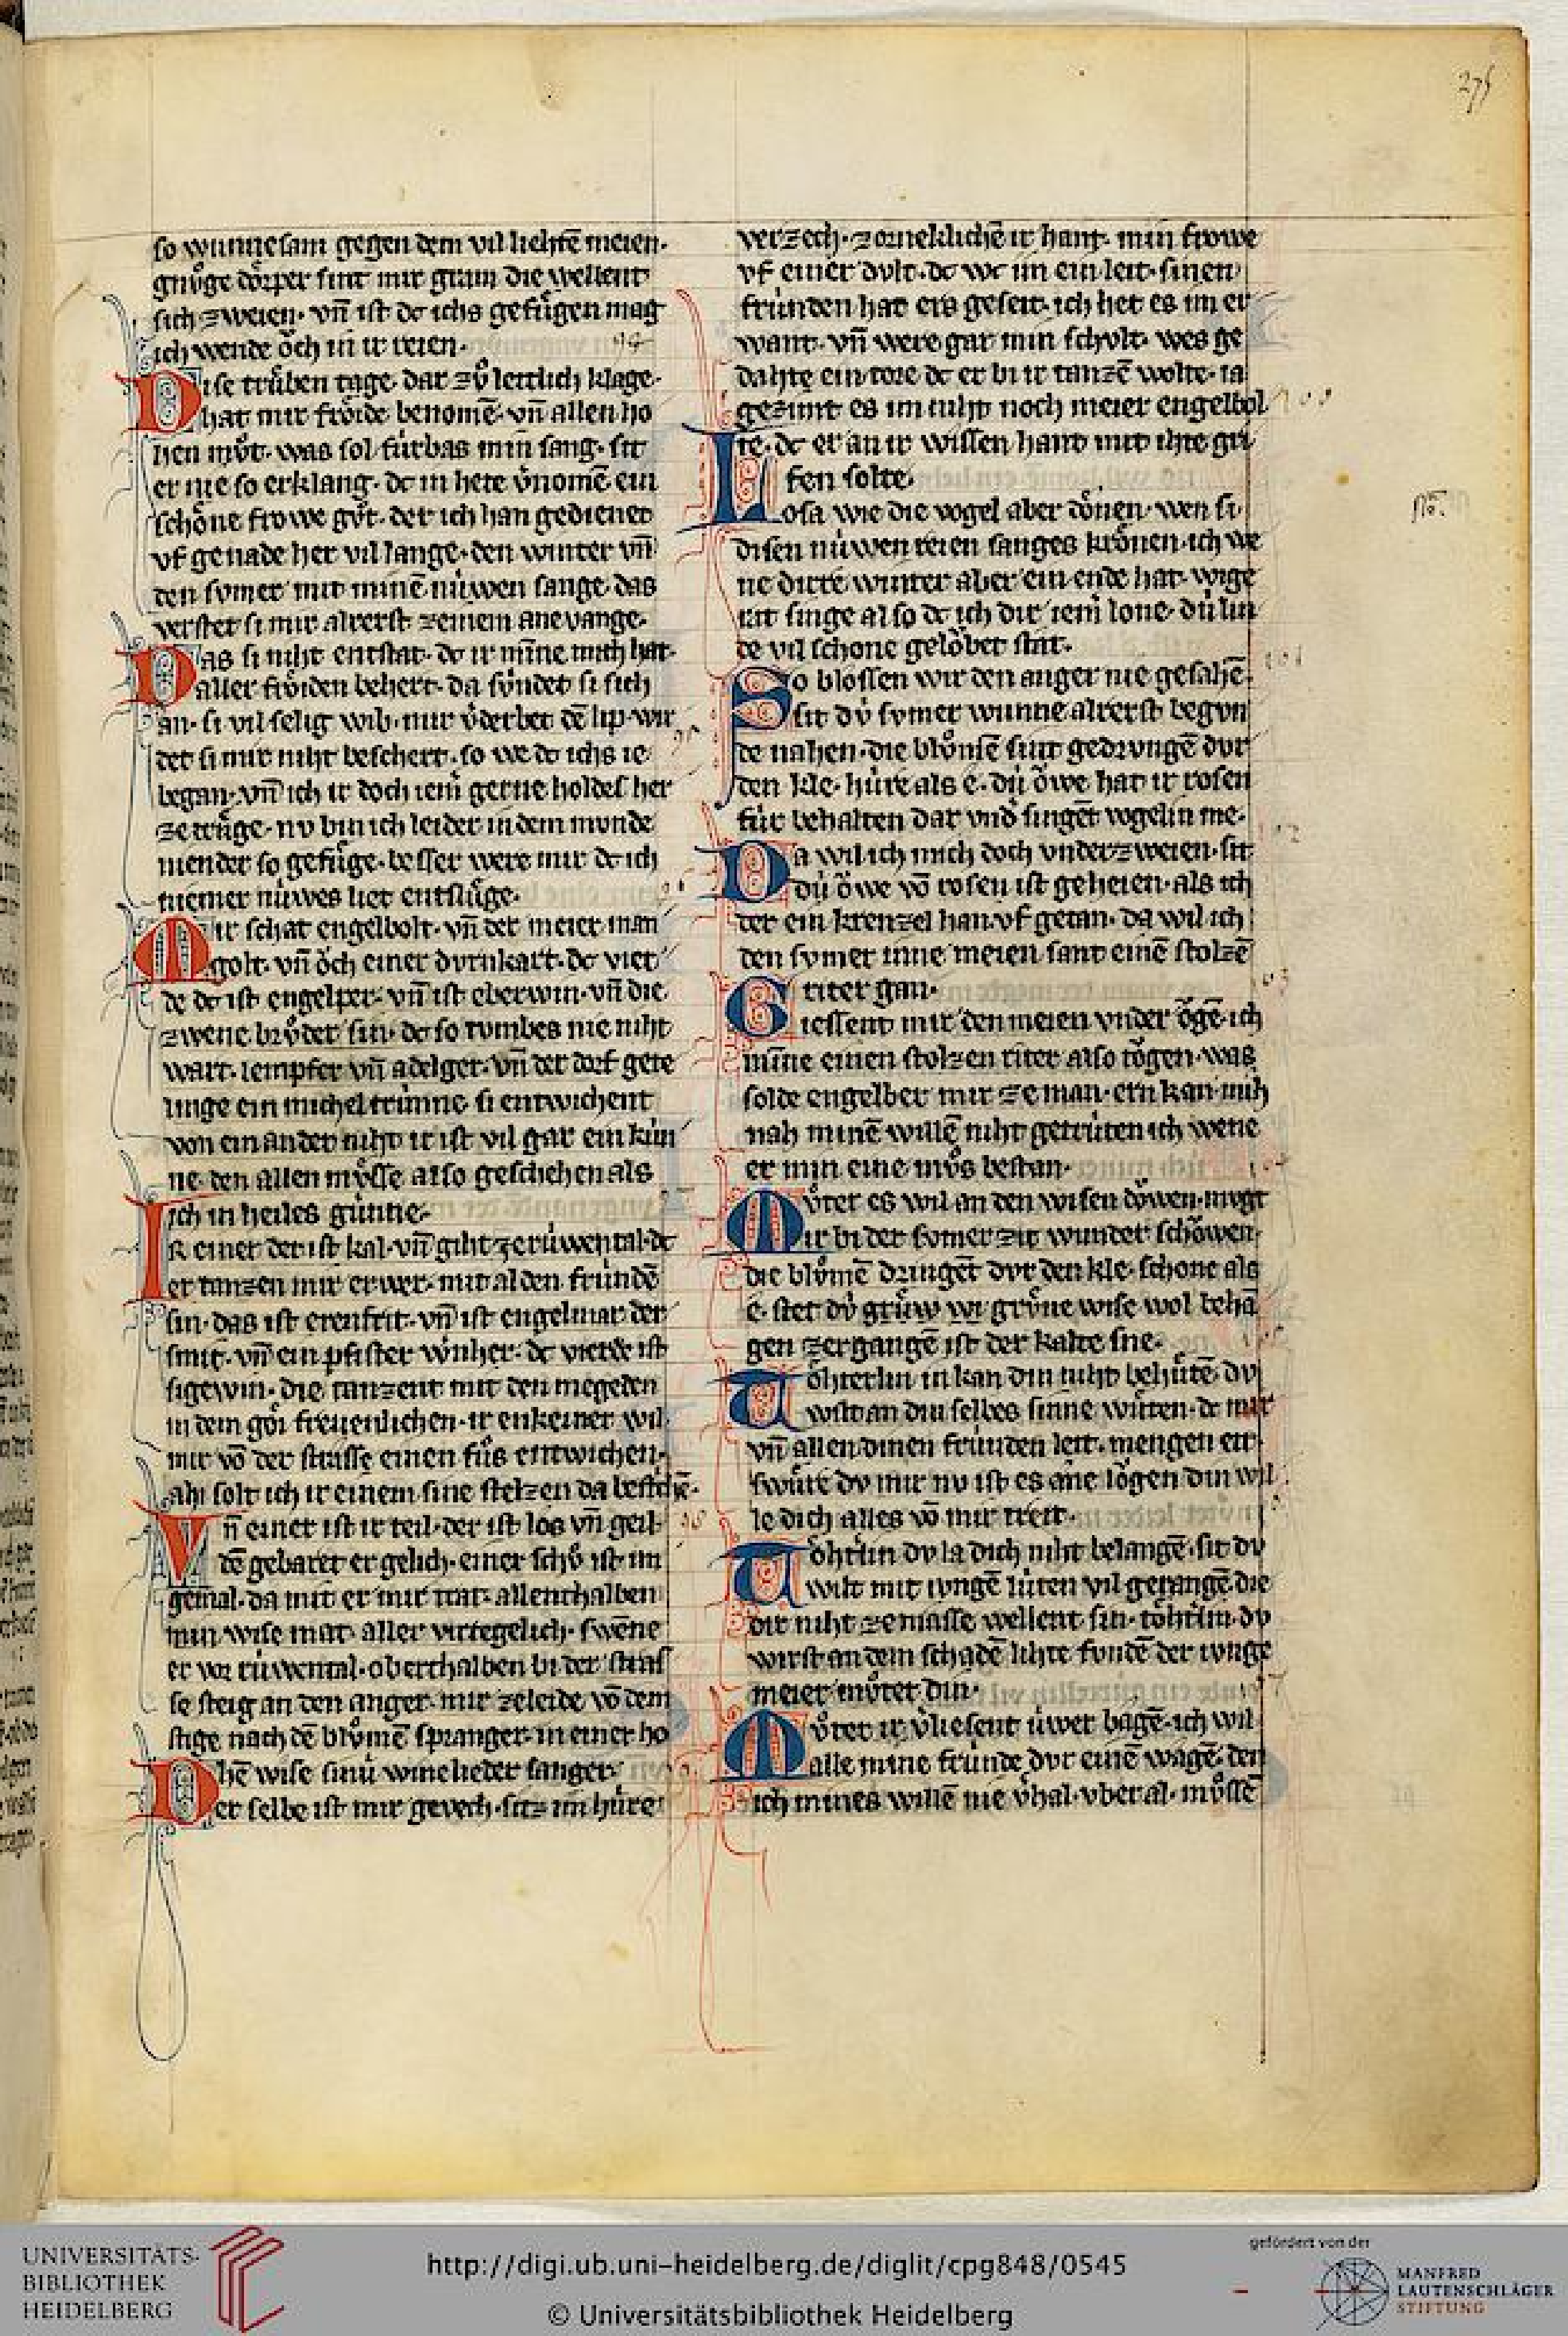 275
so wunnesam gegen dem vil liehtē meien·
gnůge dörper sint mir gram die wellent
sich zweien· vn̄ ist dc ichs gefůgen mag
ich wende ǒch in ir reien· 94
Dise trůben tage· dar zů lettlich klage·
hat mir frǒide benomē· vn̄ allen ho
hen můt· was sol fúrbas min sang· sit
er nie so erklang· dc in hete v̄nomē ein
schöne frowe gůt· der ich han gedienet
vf genade her vil lange· den winter vn̄
den svmer mit minē núwen sange· das
verstet si mir alrerst zeinem anevange·
Das si niht entstat· dc ir mīne mich hat·
aller frǒiden behert· da sv́ndet si sich
an· si vil selig wib· mir v̄derbet dē lip· wir
det si mir niht beschert· so we dc ichs ie
began· vn̄ ich ir doch iem̄ gerne holdes her
ze trage· nv bin ich leider in dem mvnde
niender so gefůge· besser were mir dc ich
niemer núwes liet entslůge·
Mir schat engelbolt· vn̄ der meier man
golt· vn̄ ǒch einer dvrnkart· dc vier
de dc ist engelper· vn̄ ist eberwin· vn̄ die
zwene brůder sin· dc so tvmbes nie niht
wart· lempfer vn̄ adelger· vn̄ der dorf gete
linge ein michel trúnne· si entwichent
von einander niht ir ist vil gar ein kún
ne· den allen můsse also geschehen als
ich in heiles gúnne·
Ir einer der ist kal· vn̄ giht ze rúwental· dc
er tanzen mir erwer· mit al den frúndē
sin· das ist erenfrit· vn̄ ist engelmar der
smit· vn̄ ein pfister wv́nher· dc vierde ist
sigewin· die tanzent mit den megeden
in dem gǒi freuenlichen· ir enkeiner wil
mir vō der strasse einen fůs entwichen·
ahi solt ich ir einem sine stelzen da bestrichē·
Vn̄ einer ist ir teil· der ist los vn̄ geil·
dē gebaret er gelich· einer schů ist im
gemal· da mit er mir trat· allenthalben
min wise mat· aller virtegelich· swēne
er vor rúwental· oberthalben bi der stras
se steig an den anger· mir zeleide vō dem
stige nach dē blůmē spranger· in einer ho
hē wise sinú wineliedet sanger·
Der selbe ist mir gevech· sitz im húre
verzech· zorneklichē ir hant· min frowe
vf einer dvlt· dc wc im ein leit· sinen
frúnden hat ers geseit· ich het es im er
want· vn̄ were gar min schvlt· wes ge
dahte ein tore dc er bi ir tanzē wolte· ia
gezimt es im niht noch meier engelbol 100
te· dc er an ir wissen hant mit ihte gri
fen solte·
Losa wie die vogel aber dönen· wen si
disen núwen reien sanges krönen· ich we
ne dirre winter aber ein ende hat· wige
rat singe also dc ich dir iem̄ lone· dú lin
de vil schone gelǒbet stat·
So blossen wir den anger nie gesahē· 101
sit dv́ svmer wunne alrerst begvn
de nahen· die blůmē sint gedrvngē dvr
den kle· húre als e· dú ǒwe hat ir rosen
fúr behalten dar vnd̄ singēt vogelin me·
Da wil ich mich doch vnderzweien· sit 102
dú ǒwe vō rosen ist geheien· als ich
der ein krenzel han vf getan· da wil ich
den svmer inne meien sant einē stolzē
riter gan· 103
Giessent mir den meien vnder ǒgē· ich
mīne einen stolzen riter also tǒgen· was
solde engelber mir ze man· ern kan mih
nah minē willē niht getrúten ich wene
er min eine můs bestan·
Můter es wil an den wisen dǒwen· mvgt
ir bi der svmer zit wunder schǒwen·
die blůmē dringēt dvr den kle· schone als
e· stet dv́ grůne wise wol behā
gen zergangē ist der kalte sne·
Töhterlin in kan din niht behůtē· dv
wilt an din selbes sinne wůten· dc mir
vn̄ allen dinen frúnden leit· mengen eit
swůre dv mir nv ist es ane lǒgen din wil
le dich alles vō mir treit·
Töhtlin dv la dich niht belangē· sit dv
wilt mit ivngē lúten vil gerangē· die
dir niht ze masse wellent sin· töhtlin· dv
wirst an dem schadē lihte fvndē der ivnge
meier můter din· 107
Můter ir v̄liesent úwer bagē· ich wil
alle mine frúnde dvr einē wagē· den
ich mines willē nie v̄hal· vber al· můssē
UNIVERSITÄTS-
BIBLIOTHEK
HEIDELBERG
http://digi.ub.uni-heidelberg.de/diglit/cpg848/0545
© Universitätsbibliothek Heidelberg
gefördert von der
MANFRED
LAUTENSCHLÄGER
STIFTUNG